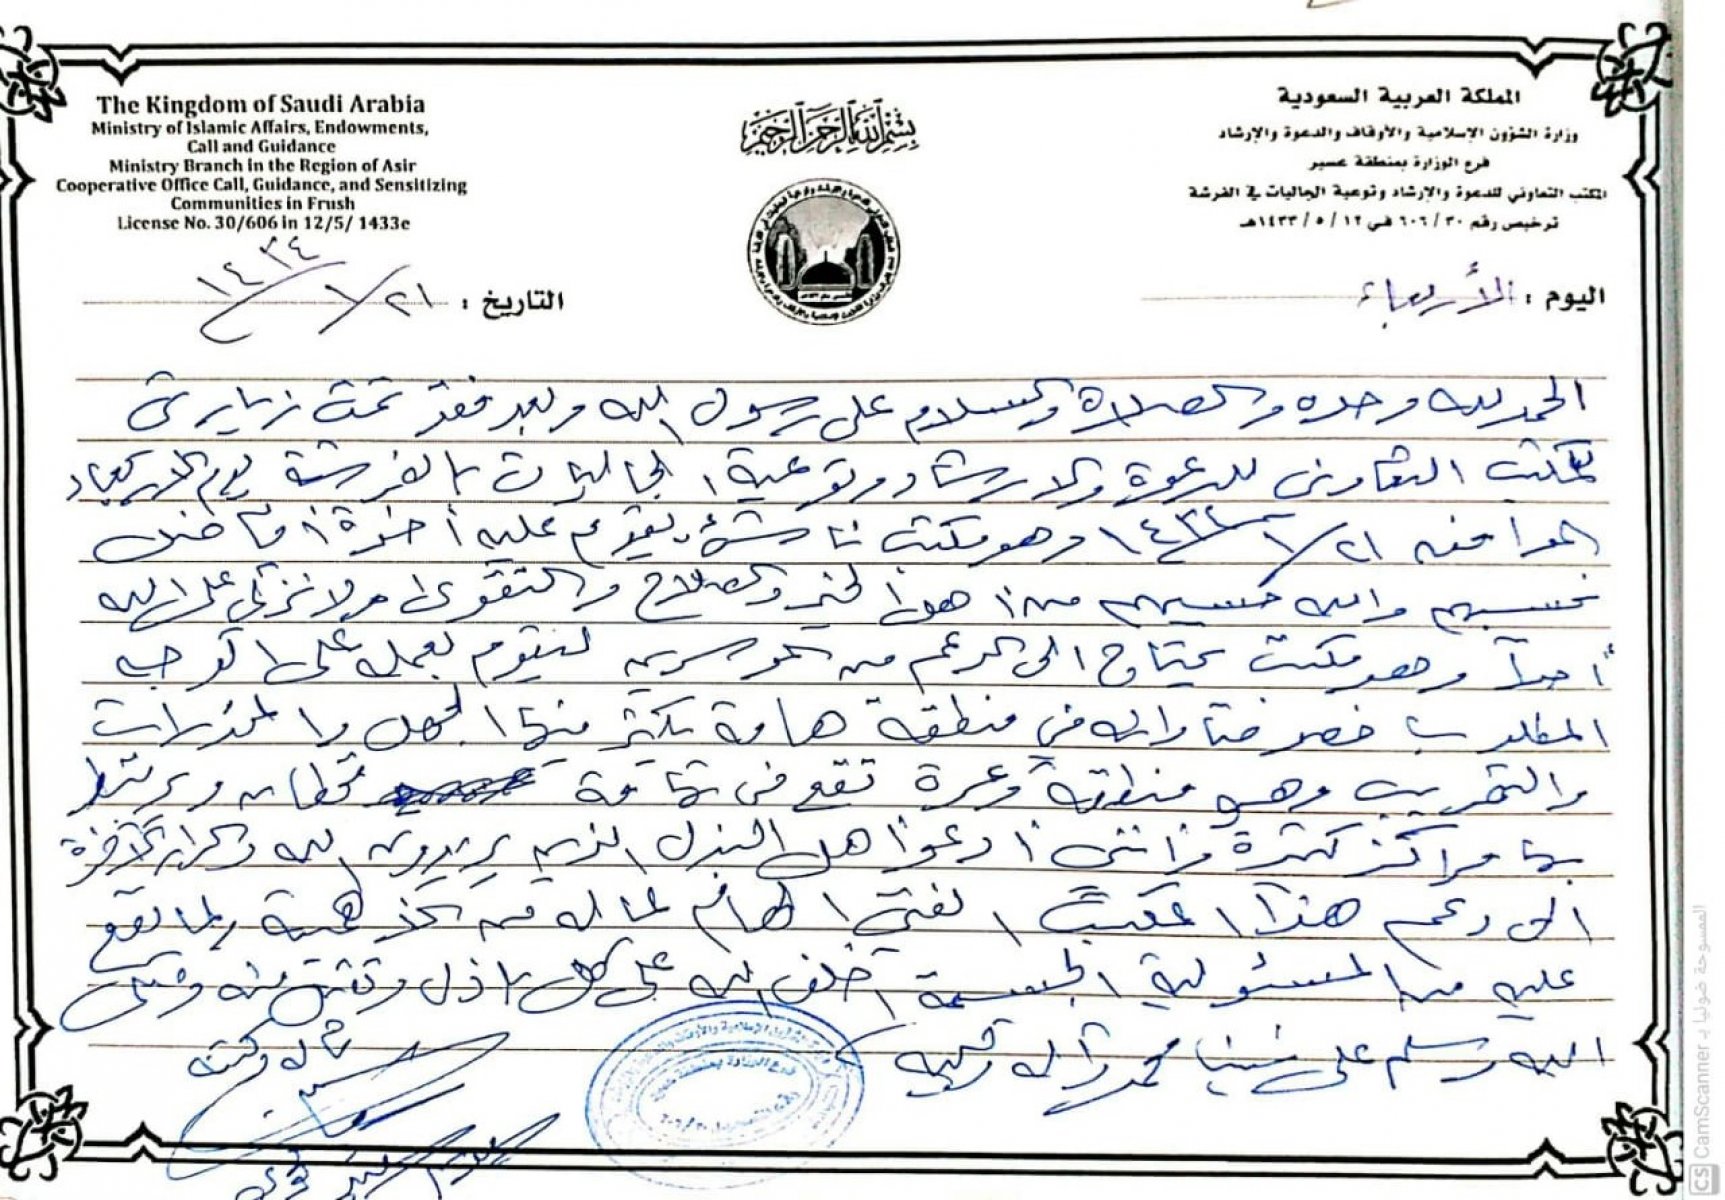 The Kingdom of Saudi Arabia
Ministry of Islamic Affairs, Endowments,
Call and Guidance
Ministry Branch in the Region of Asir
Cooperative Office Call, Guidance, and Sensitizing
Communities in Frush
License No. 30/606 in 12/5/ 1433e
بسم الله الرحمن الرحيم
المملكة العربية السعودية
وزارة الشؤون الإسلامية والأوقاف والدعوة والإرشاد
فرع الوزارة بمنطقة عسير
المكتب التعاوني للدعوة والإرشاد وتوعية الجاليات في الفرشة
ترخيص رقم ٣٠ / ٦٠٦ في ١٢ / ٥ / ١٤٣٣هـ
اليوم : الأربعاء
التاريخ : ٢١/١/١٤٣٤
الحمد لله وحده والصلاة والسلام على رسول الله وبعد فقد تمت زيارتي
للمكتب التعاوني للدعوة والارشاد وتوعية الجاليات بالفرشة يوم الاربعاء
الموافق ٢١/١/١٤٣٤ وهو مكتب ناشئ يقوم عليه أخوة أفاضل
نحسبهم والله حسيبهم من أهل الخير والصلاح والتقوى ولا نزكي على الله
أحداً وهو مكتب يحتاج الى الدعم من الموسرين ليقوم بعمله على الوجه
المطلوب خصوصا وانه في منطقة هامة يكثر فيها الجهل والمخدرات
والتهريب وهي منطقة وعرة تقع في تهامة قحطان ويرتبط
بها مراكز كثيرة فانني أدعو أهل البذل الذين يريدون الله والدار الآخرة
الى دعم هذا المكتب الفتي الهام لما له من الأهمية ولما تقع
عليه من المسئولية الجسيمة أخلف الله على كل باذل وتقبل منه وصلى
الله وسلم على نبينا محمد وآله وصحبه
قاله وكتبه
فرع الوزارة بمنطقة عسير
الممسوحة ضوئيا بـ CamScanner
CS